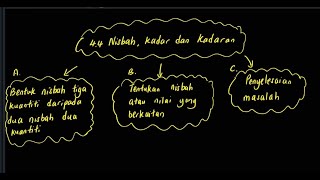 4.4 Nisbah, kadar dan kadaran
A.
Bentuk nisbah tiga
kuantiti daripada
dua nisbah dua
kuantiti
B.
Tentukan nisbah
atau nilai yang
berkaitan
C.
Penyelesaian
masalah